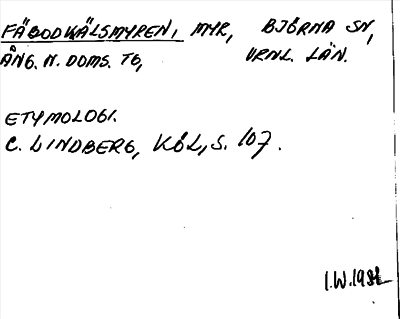 FÄBODKÄLSMYREN, MYR, BJÖRNA SN,
ÅNG. N. DOMS. TG, VRNL. LÄN.
ETYMOLOGI.
C. LINDBERG, KÖL, S. 107.
I.W.1981